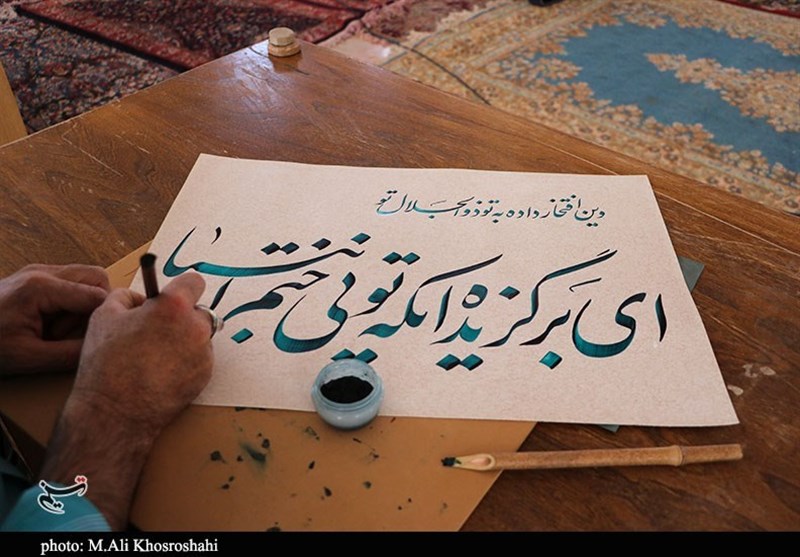 دین افتخار داده به تو ذوالجلال تو
ای برگزیده ایکه تویی ختم انبیا
تسنیم
photo: M.Ali Khosroshahi